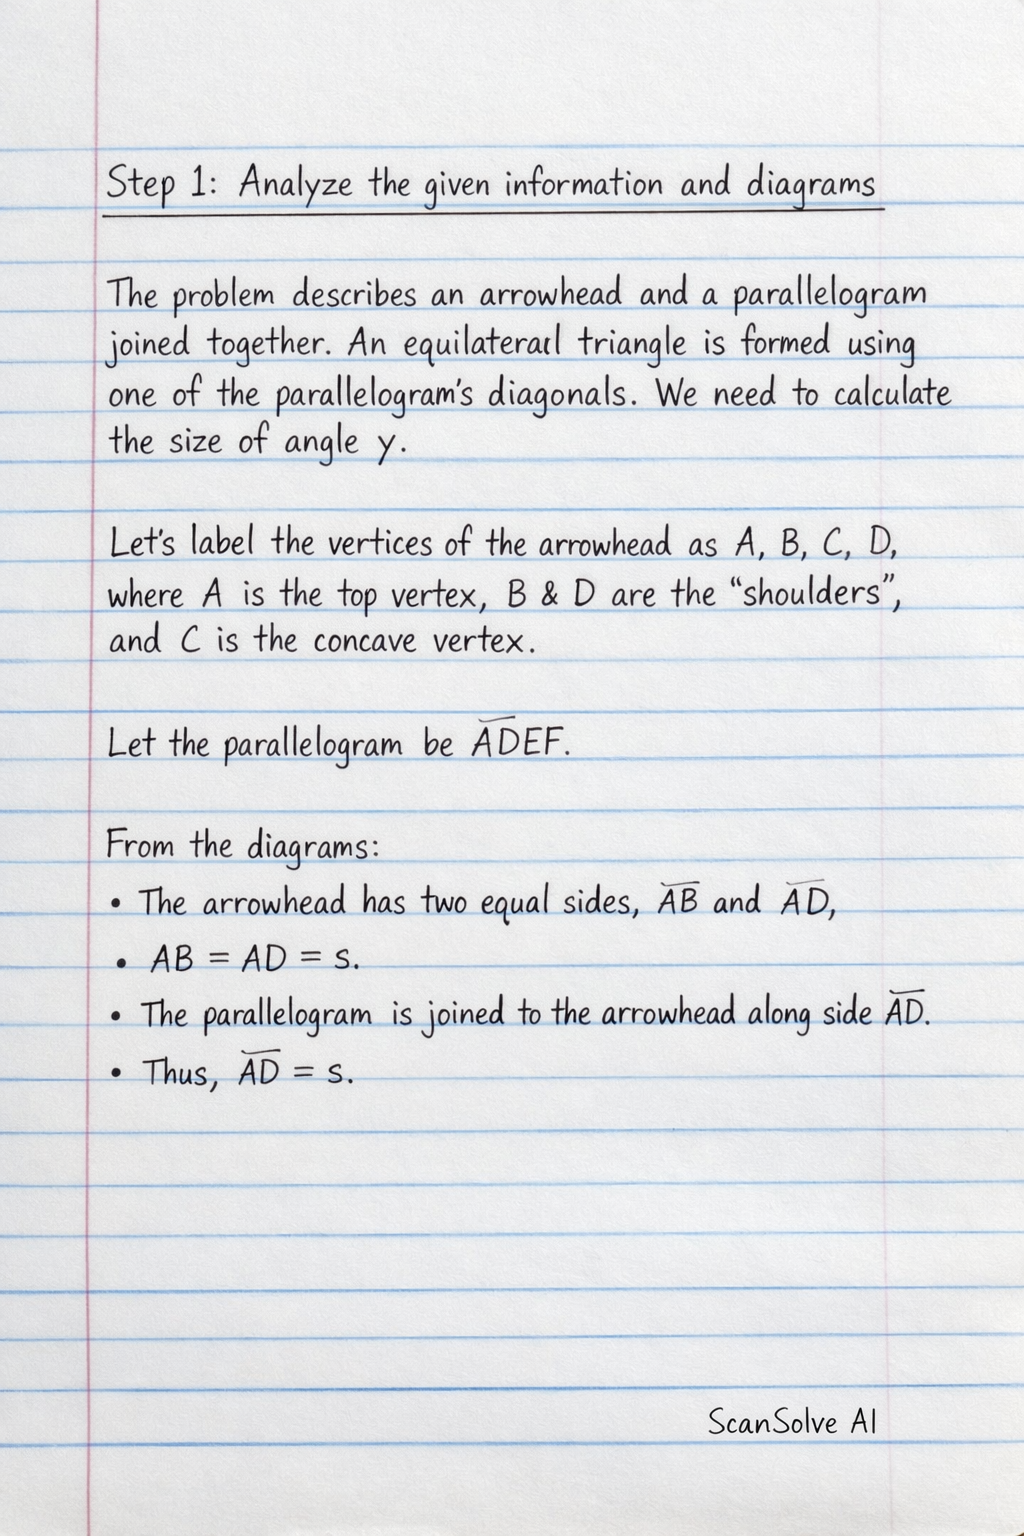 Step 1: Analyze the given information and diagrams
The problem describes an arrowhead and a parallelogram
joined together. An equilateral triangle is formed using
one of the parallelogram's diagonals. We need to calculate
the size of angle y.
Let's label the vertices of the arrowhead as A, B, C, D,
where A is the top vertex, B & D are the “shoulders”,
and C is the concave vertex.
Let the parallelogram be A̅D̅EF.
From the diagrams:
• The arrowhead has two equal sides, A̅B̅ and A̅D̅,
• AB = AD = s.
• The parallelogram is joined to the arrowhead along side A̅D̅.
• Thus, A̅D̅ = s.
ScanSolve AI